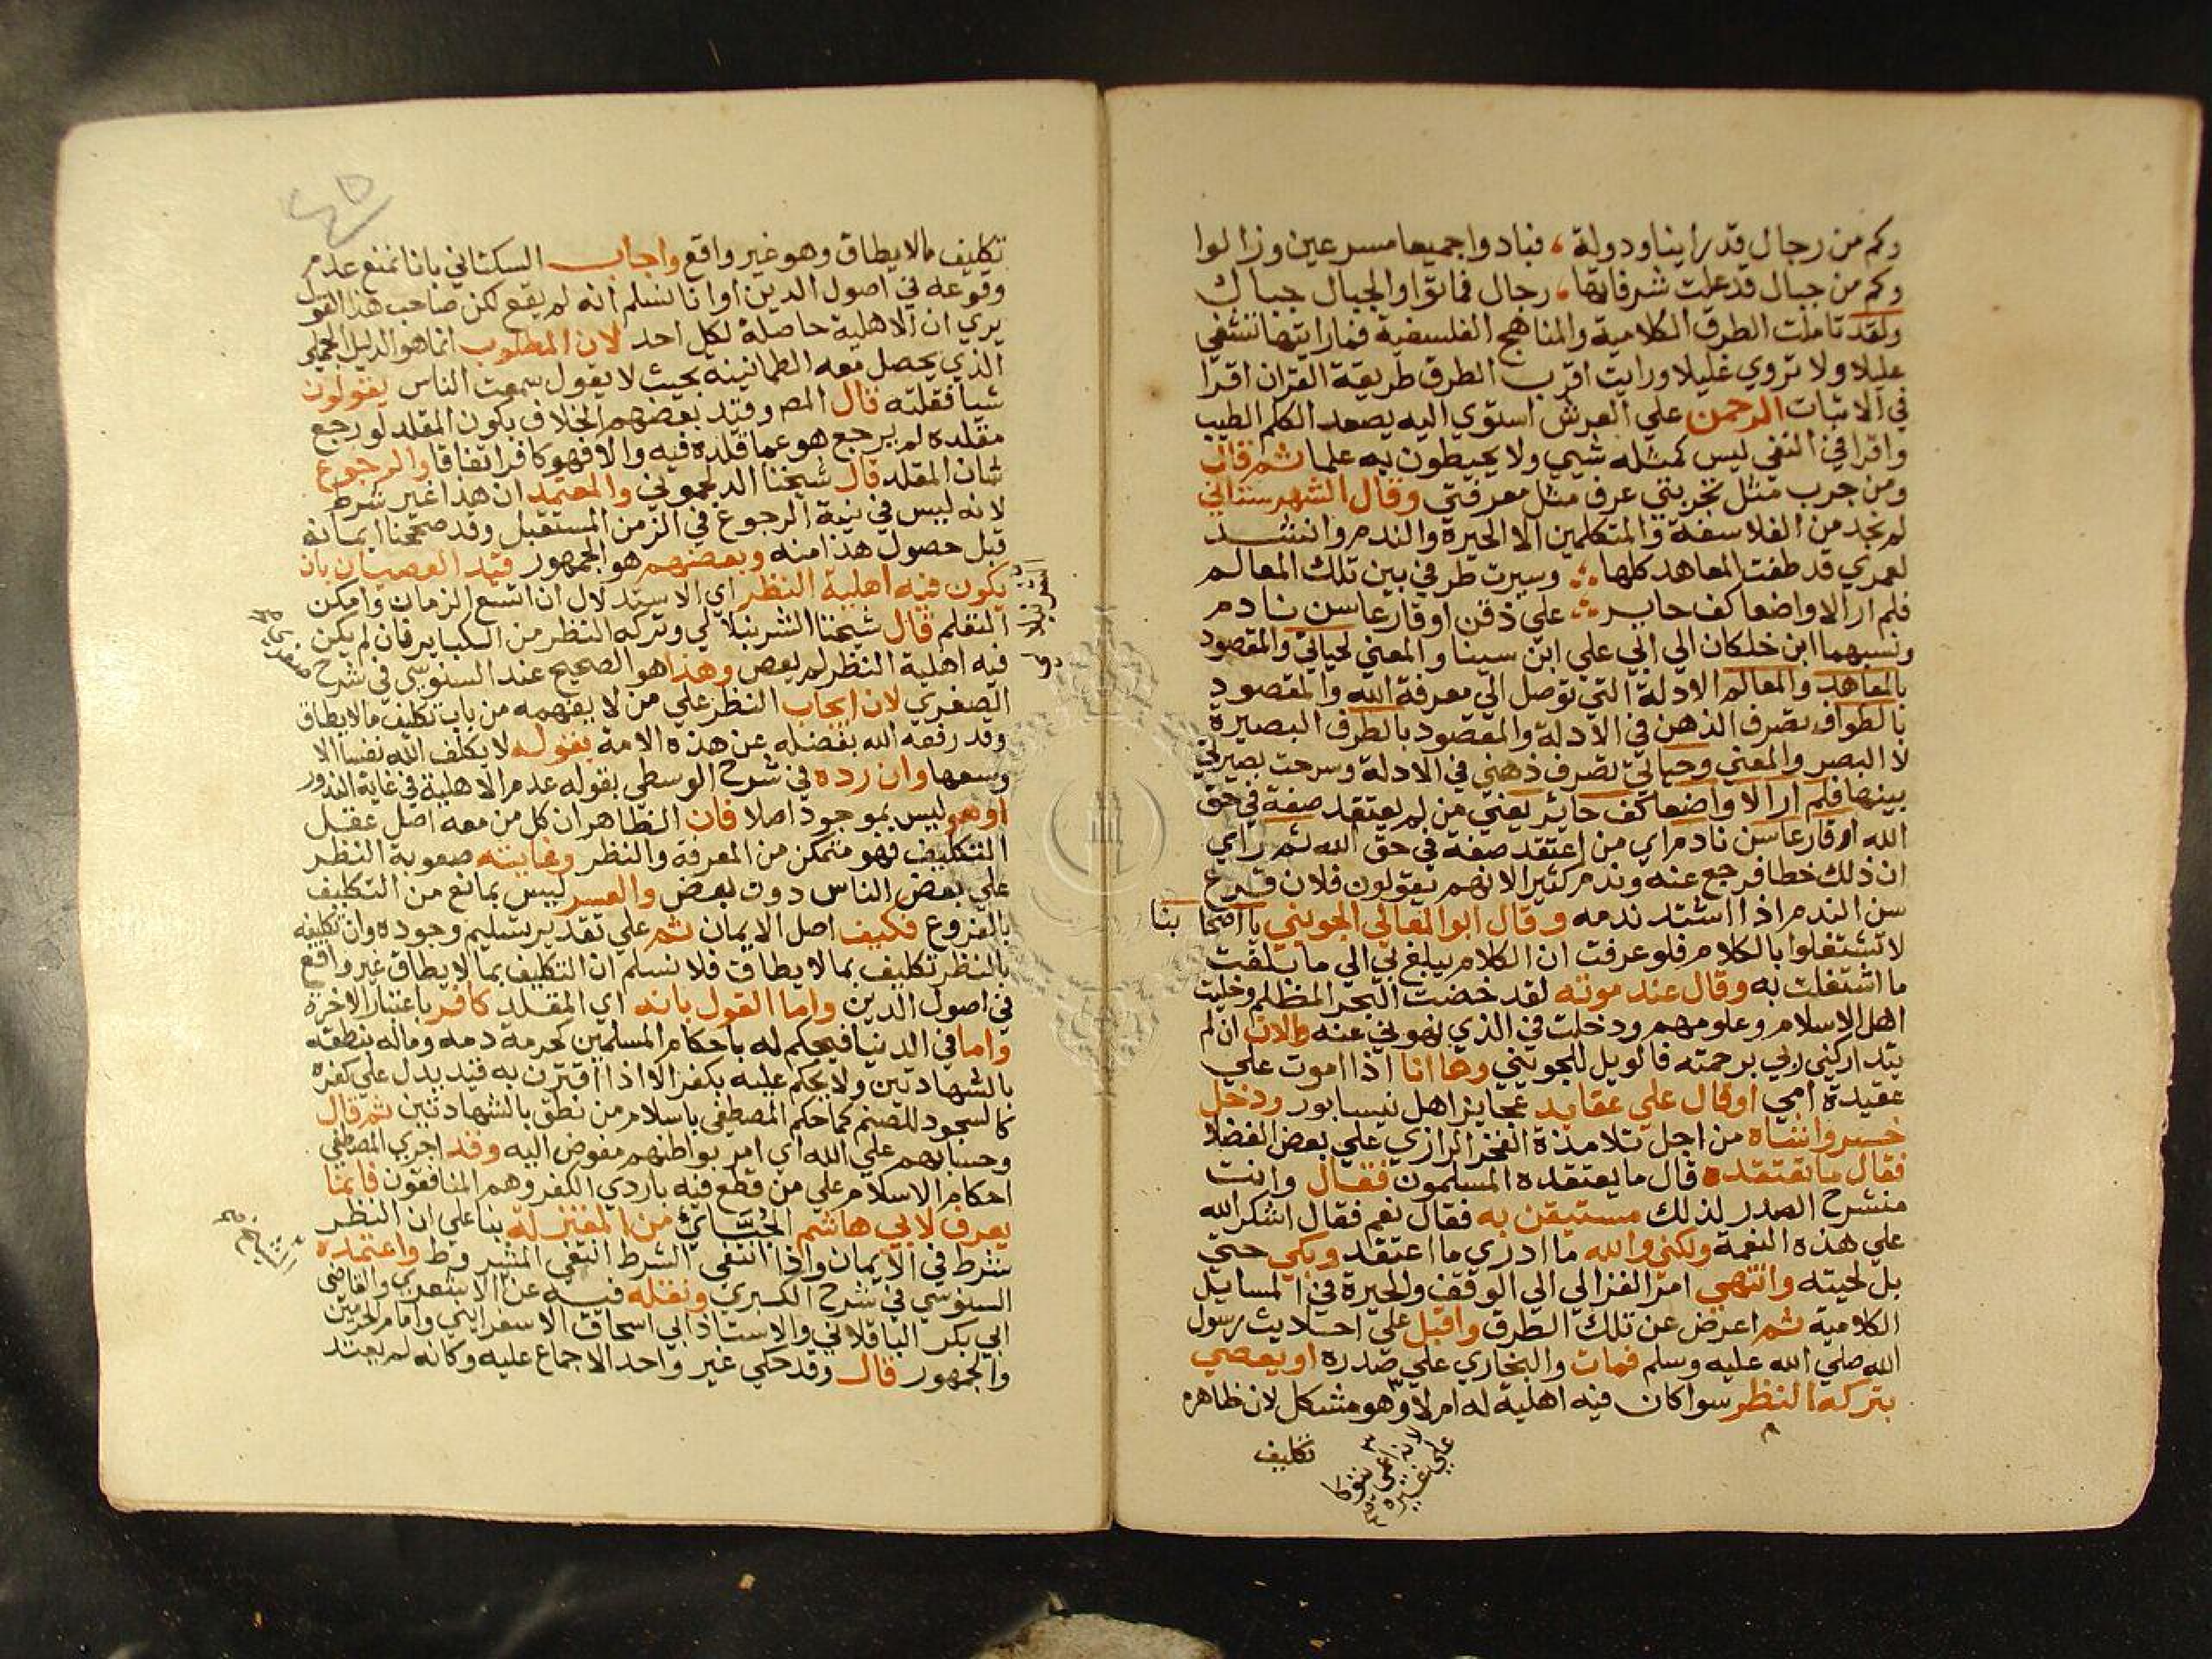 وكم من رجال قد راينا ودولة ، فبادوا جميعا مسرعين وزالوا
وكم من جبال قد علت شرفاتها ، رجال فماتوا والجبال جبال
ولقد تاملت الطرق الكلامية والمناهج الفلسفية فما رايتها تشفي
عليلا ولا تروي غليلا ورايت اقرب الطرق طريقة القران اقرا
في الاثبات الرحمن علي العرش استوي اليه يصعد الكلم الطيب
واقرا في النفي ليس كمثله شي ولا يحيطون به علما ثم قال
ومن جرب مثل تجربتي عرف مثل معرفتي وقال الشهرستاني
لم نجد من الفلاسفة والمتكلمين الا الحيرة والندم وانشد
لعمري قد طفت المعاهد كلها ؞ وسيرت طرفي بين تلك المعالم
فلم ار الا واضعا كف حاير ؞ علي ذقن او قارعا سن نادم
ونسبهما ابن خلكان الي ابي علي ابن سينا والمعني لحياتي والمقصود
بالمعاهد والمعالم الادلة التي توصل الي معرفة الله والمقصود
بالطواف تصرف الذهن في الادلة والمقصود بالطرف البصيرة
لا البصر والمعني وحياتي تصرف ذهني في الادلة وسرحت بصيرتي
بينها فلم ار الا واضعا كف حائر يعني من لم يعتقد صفة في حق
الله او قارعا سن نادم اي من اعتقد صفة في حق الله ثم راي
ان ذلك خطا فرجع عنه وندم كثيرا لانهم يقولون فلان قرع
سن الندم اذا اشتد ندمه وقال ابو المعالي الجويني يا اصحابنا
لا تشتغلوا بالكلام فلو عرفت ان الكلام يبلغ بي الي ما بلغت
ما اشتغلت به وقال عند موته لقد خضت البحر المظلم وخليت
اهل الاسلام وعلومهم ودخلت في الذي نهوني عنه والان ان لم
يتداركني ربي برحمته فالويل للجويني وها انا اذا اموت علي
عقيدة امي او قال علي عقايد عجايز اهل نيسابور ودخل
خسروا شاه من اجل تلامذة الفخر الرازي علي بعض الفضلا
فقال ما تعتقده قال ما يعتقده المسلمون فقال وانت
منشرح الصدر لذلك مستيقن به فقال نعم فقال اشكر الله
علي هذه النعمة ولكني والله ما ادري ما اعتقد وبكي حتي
بل لحيته وانتهي امر الغزالي الي الوقف والحيرة في المسايل
الكلامية ثم اعرض عن تلك الطرق واقبل علي احاديث رسول
الله صلي الله عليه وسلم فمات والبخاري علي صدره او يعصي
بتركه النظر سوا كان فيه اهلية له ام لا وهو مشكل لان ظاهره
تكليف
تكليف ما لا يطاق وهو غير واقع واجاب السكتاني بانا نمنع عدم
وقوعه في اصول الدين او انا نسلم انه لم يقع لكن صاحب هذا القول
يري ان الاهلية حاصلة لكل احد لان المطلوب انما هو الدليل الجملي
الذي يحصل معه الطمانينة بحيث لا يقول سمعت الناس يقولون
شيا فقلته قال المص وقيد بعضهم الخلاف بكون المقلد لو رجع
مقلده لم يرجع هو عما قلده فيه والا فهو كافر اتفاقا والرجوع
شان المقلد قال شيخنا الدلجموني والمعتمد ان هذا غير شرط
لانه ليس في نية الرجوع في الزمن المستقبل وقد صححنا ايمانه
قبل حصول هذا منه وبعضهم هو الجمهور قيد العصيان بان
يكون فيه اهلية النظر اي الاستدلال ان اتسع الزمان وامكن
التعلم قال شيخنا الشرنبلالي وتركه النظر من الكباير فان لم يكن
فيه اهلية النظر لم يعص وهذا هو الصحيح عند السنوسي في شرح
الصغري لان ايجاب النظر علي من لا يفهمه من باب تكليف ما لا يطاق
وقد رفعه الله بفضله عن هذه الامة بقوله لا يكلف الله نفسا الا
وسعها وان رده في شرح الوسطي بقوله عدم الاهلية في غاية الندور
او هو ليس بموجود اصلا فان الظاهر ان كل من معه اصل عقل
التكليف فهو متمكن من المعرفة والنظر وغايته صعوبة النظر
علي بعض الناس دون بعض والعسر ليس بمانع من التكليف
بالفروع فكيف اصل الايمان ثم علي تقدير تسليم وجوده وان تكليفه
بالنظر تكليف بما لا يطاق فلا نسلم ان التكليف بما لا يطاق غير واقع
في اصول الدين واما القول بانه اي المقلد كافر باعتبار الاخرة
واما في الدنيا فيحكم له باحكام المسلمين كحرمة دمه وماله بنطقه
بالشهادتين ولا يحكم عليه بكفر الا اذا اقترن به قيد يدل علي كفره
كالسجود للصنم كما حكم المصطفي باسلام من نطق بالشهادتين ثم قال
وحسابهم علي الله اي امر بواطنهم مفوض اليه وقد اجري المصطفي
احكام الاسلام علي من قطع فيه باردي الكفر وهم المنافقون فانما
يعرف لابي هاشم الجبائي من المعتزلة بنا علي ان النظر
شرط في الايمان واذا انتفي الشرط انتفي المشروط واعتمده
السنوسي في شرح الكبري ونقله فيه عن الاشعري والقاضي
ابي بكر الباقلاني والاستاذ ابي اسحاق الاسفرايني وامام الحرمين
والجمهور قال وقد حكي غير واحد الاجماع عليه وكانه لم يعتد